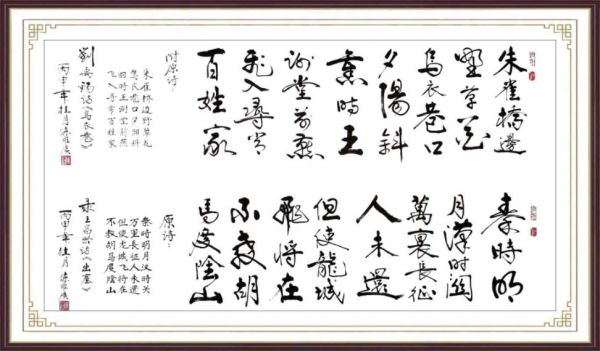 朱雀橋邊
野草花
烏衣巷口
夕陽斜
舊時王
謝堂前燕
飛入尋常
百姓家
附原诗：
朱雀桥边野草花
乌衣巷口夕阳斜
旧时王谢堂前燕
飞入寻常百姓家
劉禹錫诗《烏衣巷》
丙申年桂月
秦時明
月漢時關
萬裏長征
人未還
但使龍城
飛將在
不教胡
馬度陰山
原诗：
秦時明月汉時关
万里長征人未還
但使龙城飞将在
不教胡马度阴山
录王昌龄诗《出塞》
丙申年桂月